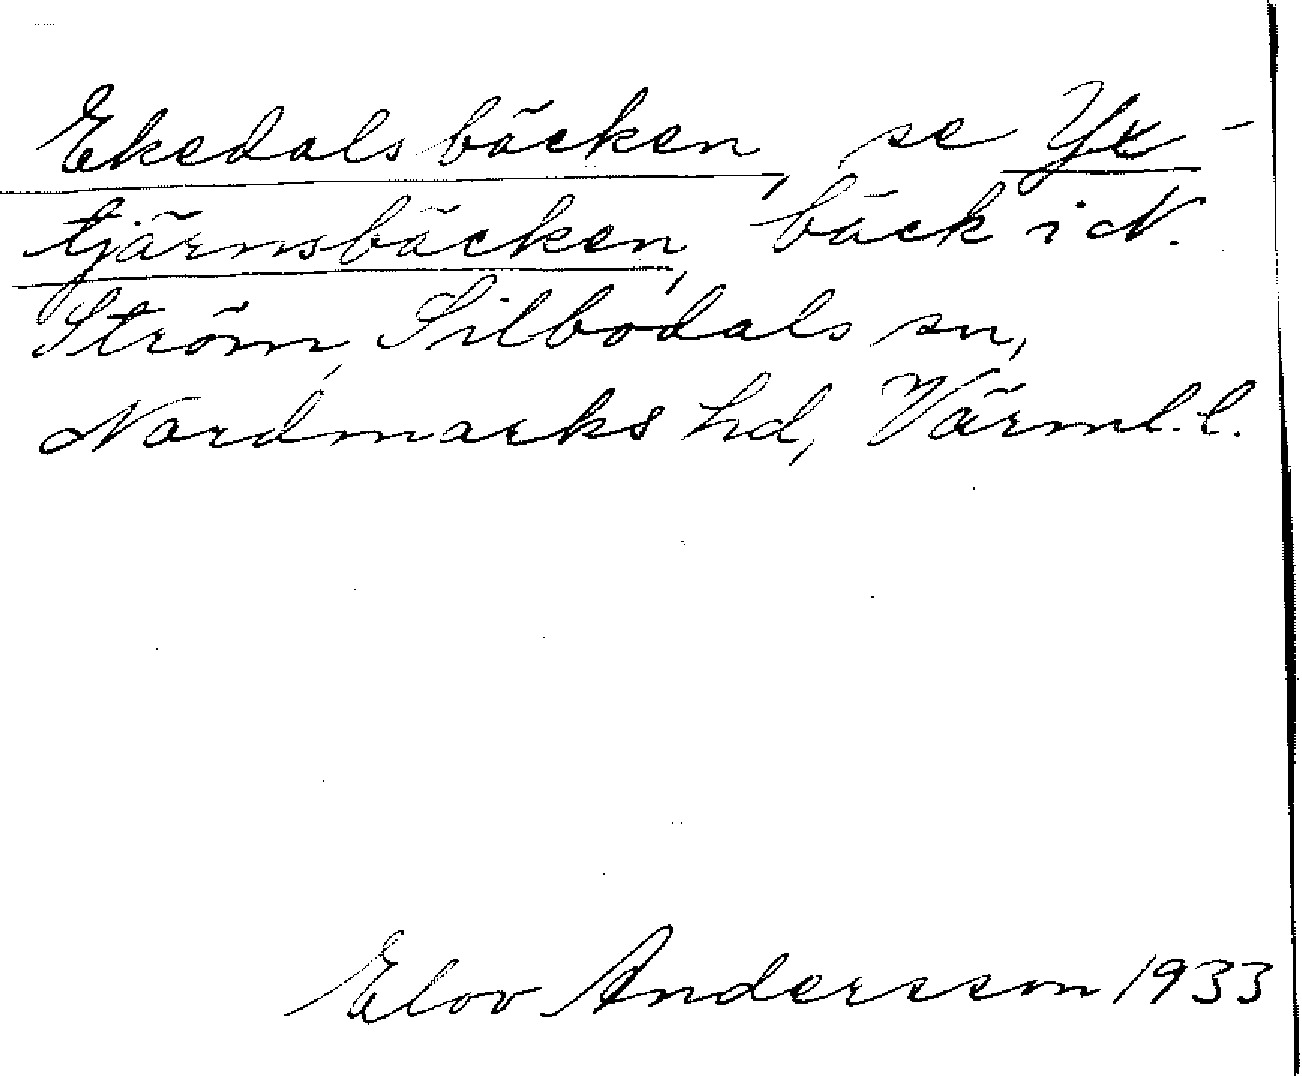 Ekedalsbäcken, se Yx-
tjärnsbäcken, bäck i N.
Ström, Silbodals sn,
Nordmarks hd, Värml. l.
Elov Andersson 1933